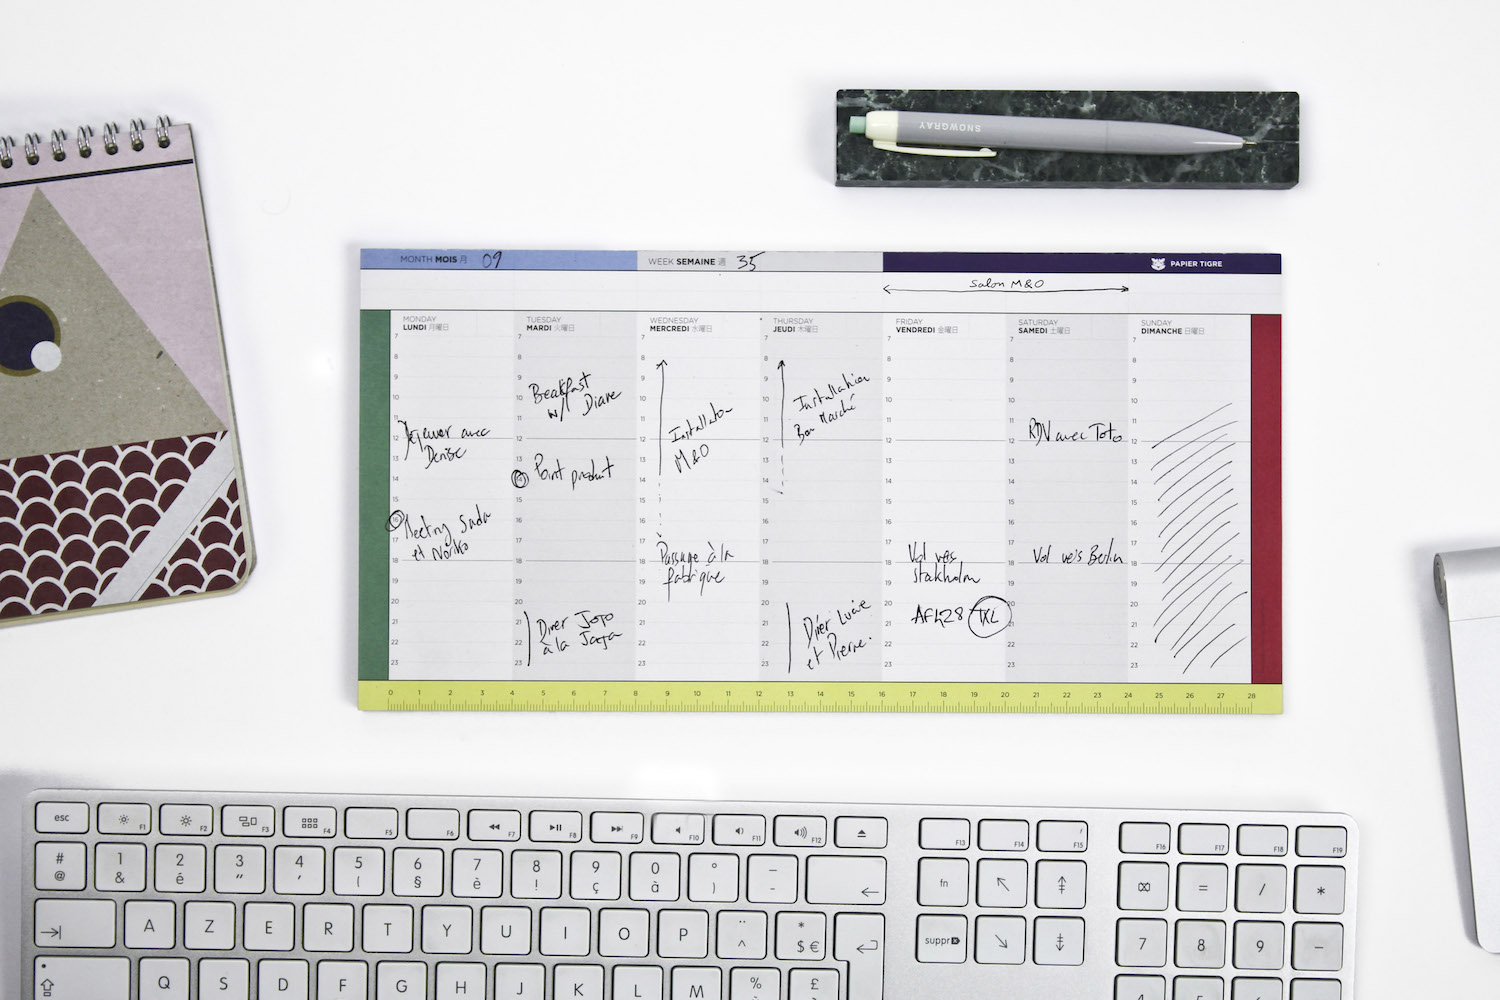 SNOWGRAY
MONTH MOIS 月 09
WEEK SEMAINE 週 35
PAPIER TIGRE
Salon M&O
MONDAY
LUNDI 月曜日
TUESDAY
MARDI 火曜日
WEDNESDAY
MERCREDI 水曜日
THURSDAY
JEUDI 木曜日
FRIDAY
VENDREDI 金曜日
SATURDAY
SAMEDI 土曜日
SUNDAY
DIMANCHE 日曜日
7 8 9 10 11 12 13 14 15 16 17 18 19 20 21 22 23
Déjeuner avec
Denise
Meeting
et
Breakfast
w/ Diane
Point product
Diner Jojo
à la
Installation
M&O
Passage à la
fabrique
Installation
Bon Marché
Diner Lucie
et Pierre.
Vol vers
Stokholm
AF428 TXL
RDV avec Toto
Vol vers Berlin
0 1 2 3 4 5 6 7 8 9 10 11 12 13 14 15 16 17 18 19 20 21 22 23 24 25 26 27 28
esc F1 F2 F3 F4 F5 F6 F7 F8 F9 F10 F11 F12 F13 F14 F15 F16 F17 F18 F19
# 1 2 3 4 5 6 7 8 9 0 ° -
@ & é " ' ( § è ! ç à ) - fn = / *
A Z E R T Y U I O P ¨ * suppr 7 8 9 -
^ $ €
Q S D F G H J K L M % £ 4 5 6